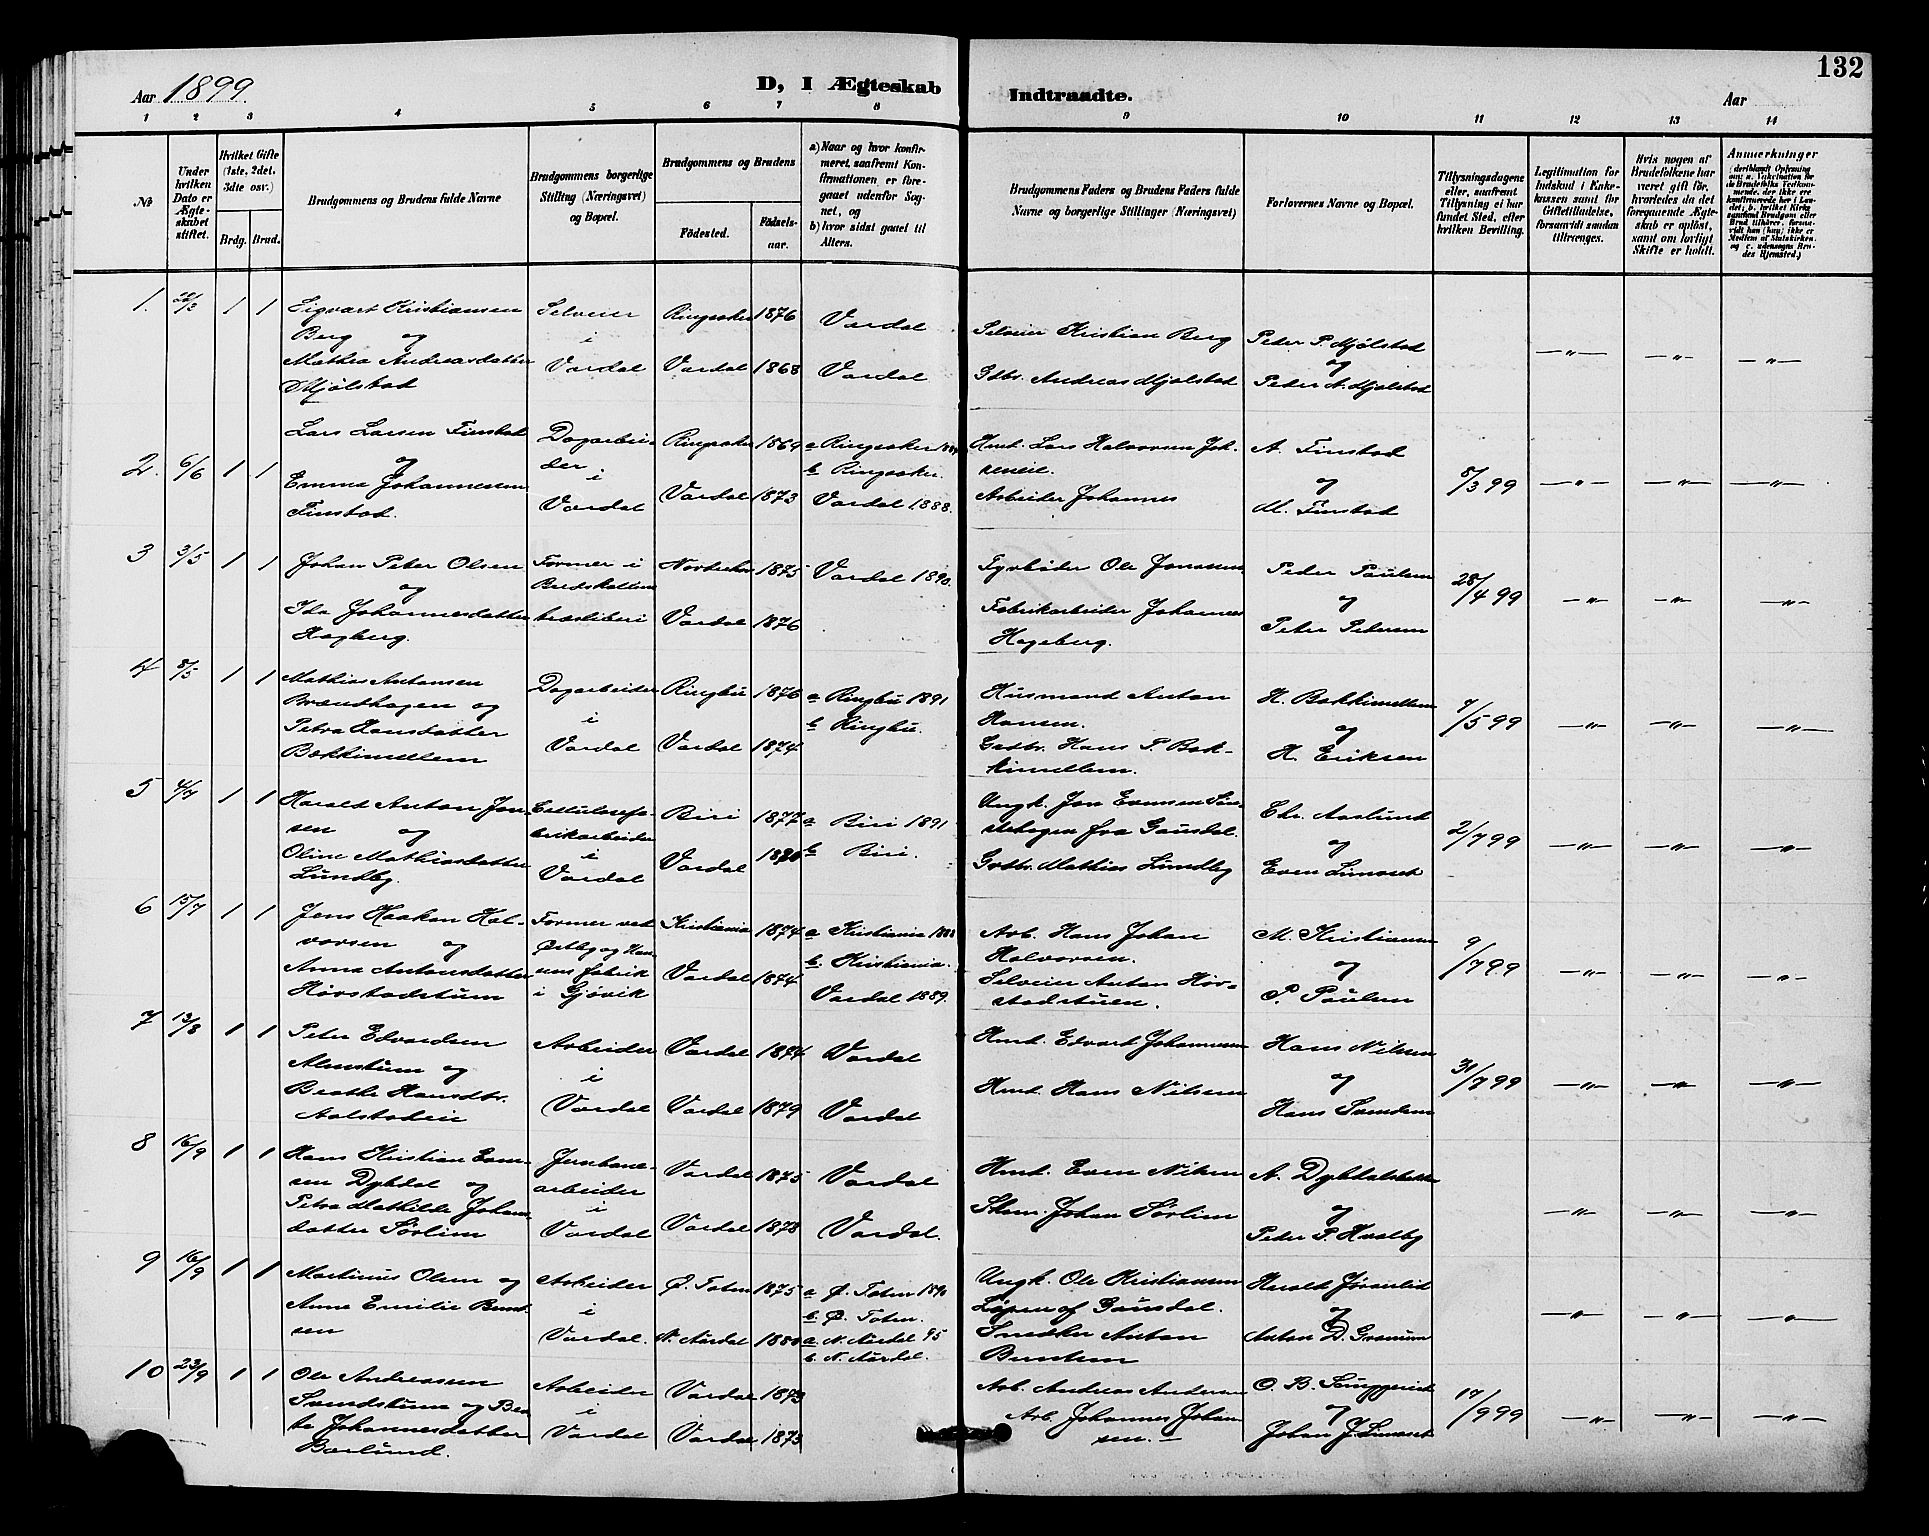 Aar 1899.
D, I Ægteskab Indtraadte.
Aar
132
1 2 3 4 5 6 7 8 9 10 11 12 13 14
No
Under hvilken Dato er Ægteskabet stiftet.
Hvilket Gifte (1ste, 2det, 3die osv.)
Brdg. Brud.
Brudgommens og Brudens fulde Navne
Brudgommens borgerlige Stilling (Næringsvei) og Bopæl.
Brudgommens og Brudens
Fødested. Fødselsaar.
a) Naar og hvor konfirmeret, saafremt Konfirmationen er foregaaet udenfor Sognet, og
b) hvor sidst gaaet til Alters.
Brudgommens Faders og Brudens Faders fulde Navne og borgerlige Stillinger (Næringsvei)
Forlovernes Navne og Bopæl.
Tillysningsdagene eller, saafremt Tillysning ei har fundet Sted, efter hvilken Bevilling.
Legitimation for Indskud i Enkekassen samt for Giftetilladelse, forsaavidt saadan tiltrænges.
Hvis nogen af Brudefolkene har været gift før, hvorledes da det foregaaende Ægteskab er opløst, samt om lovligt Skifte er holdt.
Anmerkninger
1. 26/3 1 1 Sigvart Kristiansen Berg og Mathea Andreasdatter Mjølstad
Selveier i Vardal
Ringsaker 1876 Vardal
Vardal 1868 Vardal
Selveier Kristian Berg
Gdbr. Andreas Mjølstad
Peder P. Mjølstad og Peder A. Mjølstad
2. 6/6 1 1 Lars Larsen Finstad og Emma Johannessen Finstad.
Dagarbeider i Vardal
Ringsaker 1869 a Ringsaker
b Ringsaker.
Vardal 1873 Vardal 1888.
Hmd. Lars Halvorsen
Arbeider Johannes
A. Finstad og M. Finstad
5/3 99
3 3/5 1 1 Johan Peter Olsen og Ida Johannesdatter Hagberg.
Former i
1875 Vardal 1890.
Vardal 1876
Fyrbøder Ole Jonassen
Fabrikarbeider Johannes Hageberg.
Peder Paulsen og Peter Petersen
28/4 99
4 8/5 1 1 Mathias Antonsen Brændhagen og Petra Hansdatter
Dagarbeider i Vardal
Ringbu 1876 a Ringbu 1891
b Ringbu.
Vardal 1874
Husmand Anton Hansen.
Gdbr. Hans P.
H. og H. Eriksen
7/5 99
5 4/7 1 1 Harald Anton Jonsen og Oline Mathiasdatter Lundby.
Cellulosefabrikarbeider i Vardal
Biri 1877 a Biri 1891
b Biri.
Vardal
Ungk. Jon Evensen fra Gausdal.
Gdbr. Mathias Lundby
Chr. Aaslund og Even Limoset
2/7 99
6 15/7 1 1 Jens Haakon Halvorsen og Anna Antonsdatter Hørstadstuen
Former ved Østby og Hansens fabrik i Gjøvik
Kristiania 1874 a Kristiania
b. Kristiania.
Vardal 1874 Vardal 1889.
Arb. Hans Johan Halvorsen.
Selveier Anton Hørstadstuen.
M. Kristiansen og P. Paulsen
9/7 99
7 13/8 1 1 Peter Edvardsen Almstuen og Beathe Hansdtr.
Arbeider i Vardal
Vardal 1874 Vardal
Vardal 1879 Vardal
Hmd. Edvart Johannesen
Hmd. Hans Nilsen
Hans Nilsen og Hans Svendsen
31/7 99
8 16/9 1 1 Hans Kristian Evensen Dybdal og Petra Mathilde Johansdatter Sørlien
Jernbanearbeider i Vardal
Vardal 1875 Vardal
Vardal 1878 Vardal.
Hmd. Even Nilsen
Johan Sørlien
A. Dybdalsbakke og Peder P. Hvalby
9 16/9 1 1 Martinus Olsen og Anna Emilie Berntsen
Arbeider i Vardal.
Ø. Toten 1875 a Ø. Toten 1890
b. Ø. Toten.
N. Aurdal 1880 a. N. Aurdal 95
b. N. Aurdal.
Ungk. Ole Kristiansen af Gausdal.
Snedker Anton Berntsen
Harald og Anton D. Granum
10 23/9 1 1 Ole Andreassen Svendstuen og Beate Johannesdatter Borlund.
Arbeider i Vardal
Vardal 1873
Vardal 1875
Arb. Andreas Andersen
Arb. Johannes Johansen. —
O. B. og Johan J. Limoset
17/9 99